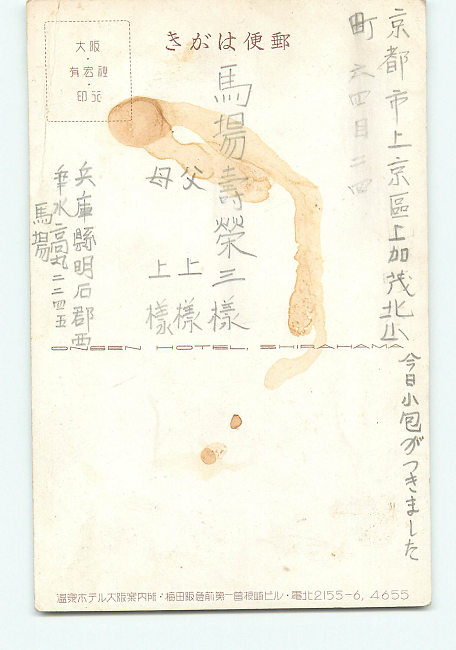 郵便はがき
大阪
・
有宏社
・
印行
京都市上京區上加茂北山
町六四目二四
馬場壽榮三様
父上様
母上様
兵庫縣明石郡西
垂水高丸二二四五
馬場
ONSEN HOTEL, SHIRAHAMA
今日小包がつきました
温泉ホテル大阪案内所・梅田阪急前第一曽根崎ビル・電北2155-6, 4655